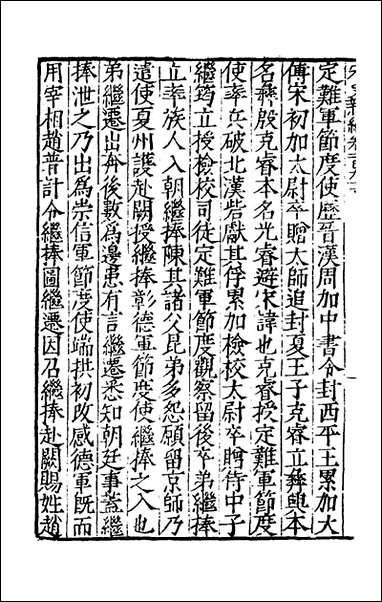 定難軍節度使歷晉漢周加中書令封西平王累加大
傅宋初加太尉卒贈大師追封夏王子克睿立彝興本
名彝殷克睿本名光睿避宋諱也克睿授定難軍節度
使率兵破北漢砦獻其俘累加檢校太尉卒贈侍中子
繼筠立授檢校司徒定難軍節度觀察留後卒弟繼捧
立率族人入朝繼捧陳其諸父昆弟多怨願留京師乃
遣使夏州護赴闕授繼捧彰德軍節度使繼捧之入也
弟繼遷出奔後數為邊患有言繼遷悉知朝廷事蓋繼
捧泄之乃出為崇信軍節度使端拱初改感德軍既而
用宰相趙普計令繼捧圖繼遷因召繼捧赴闕賜姓趙